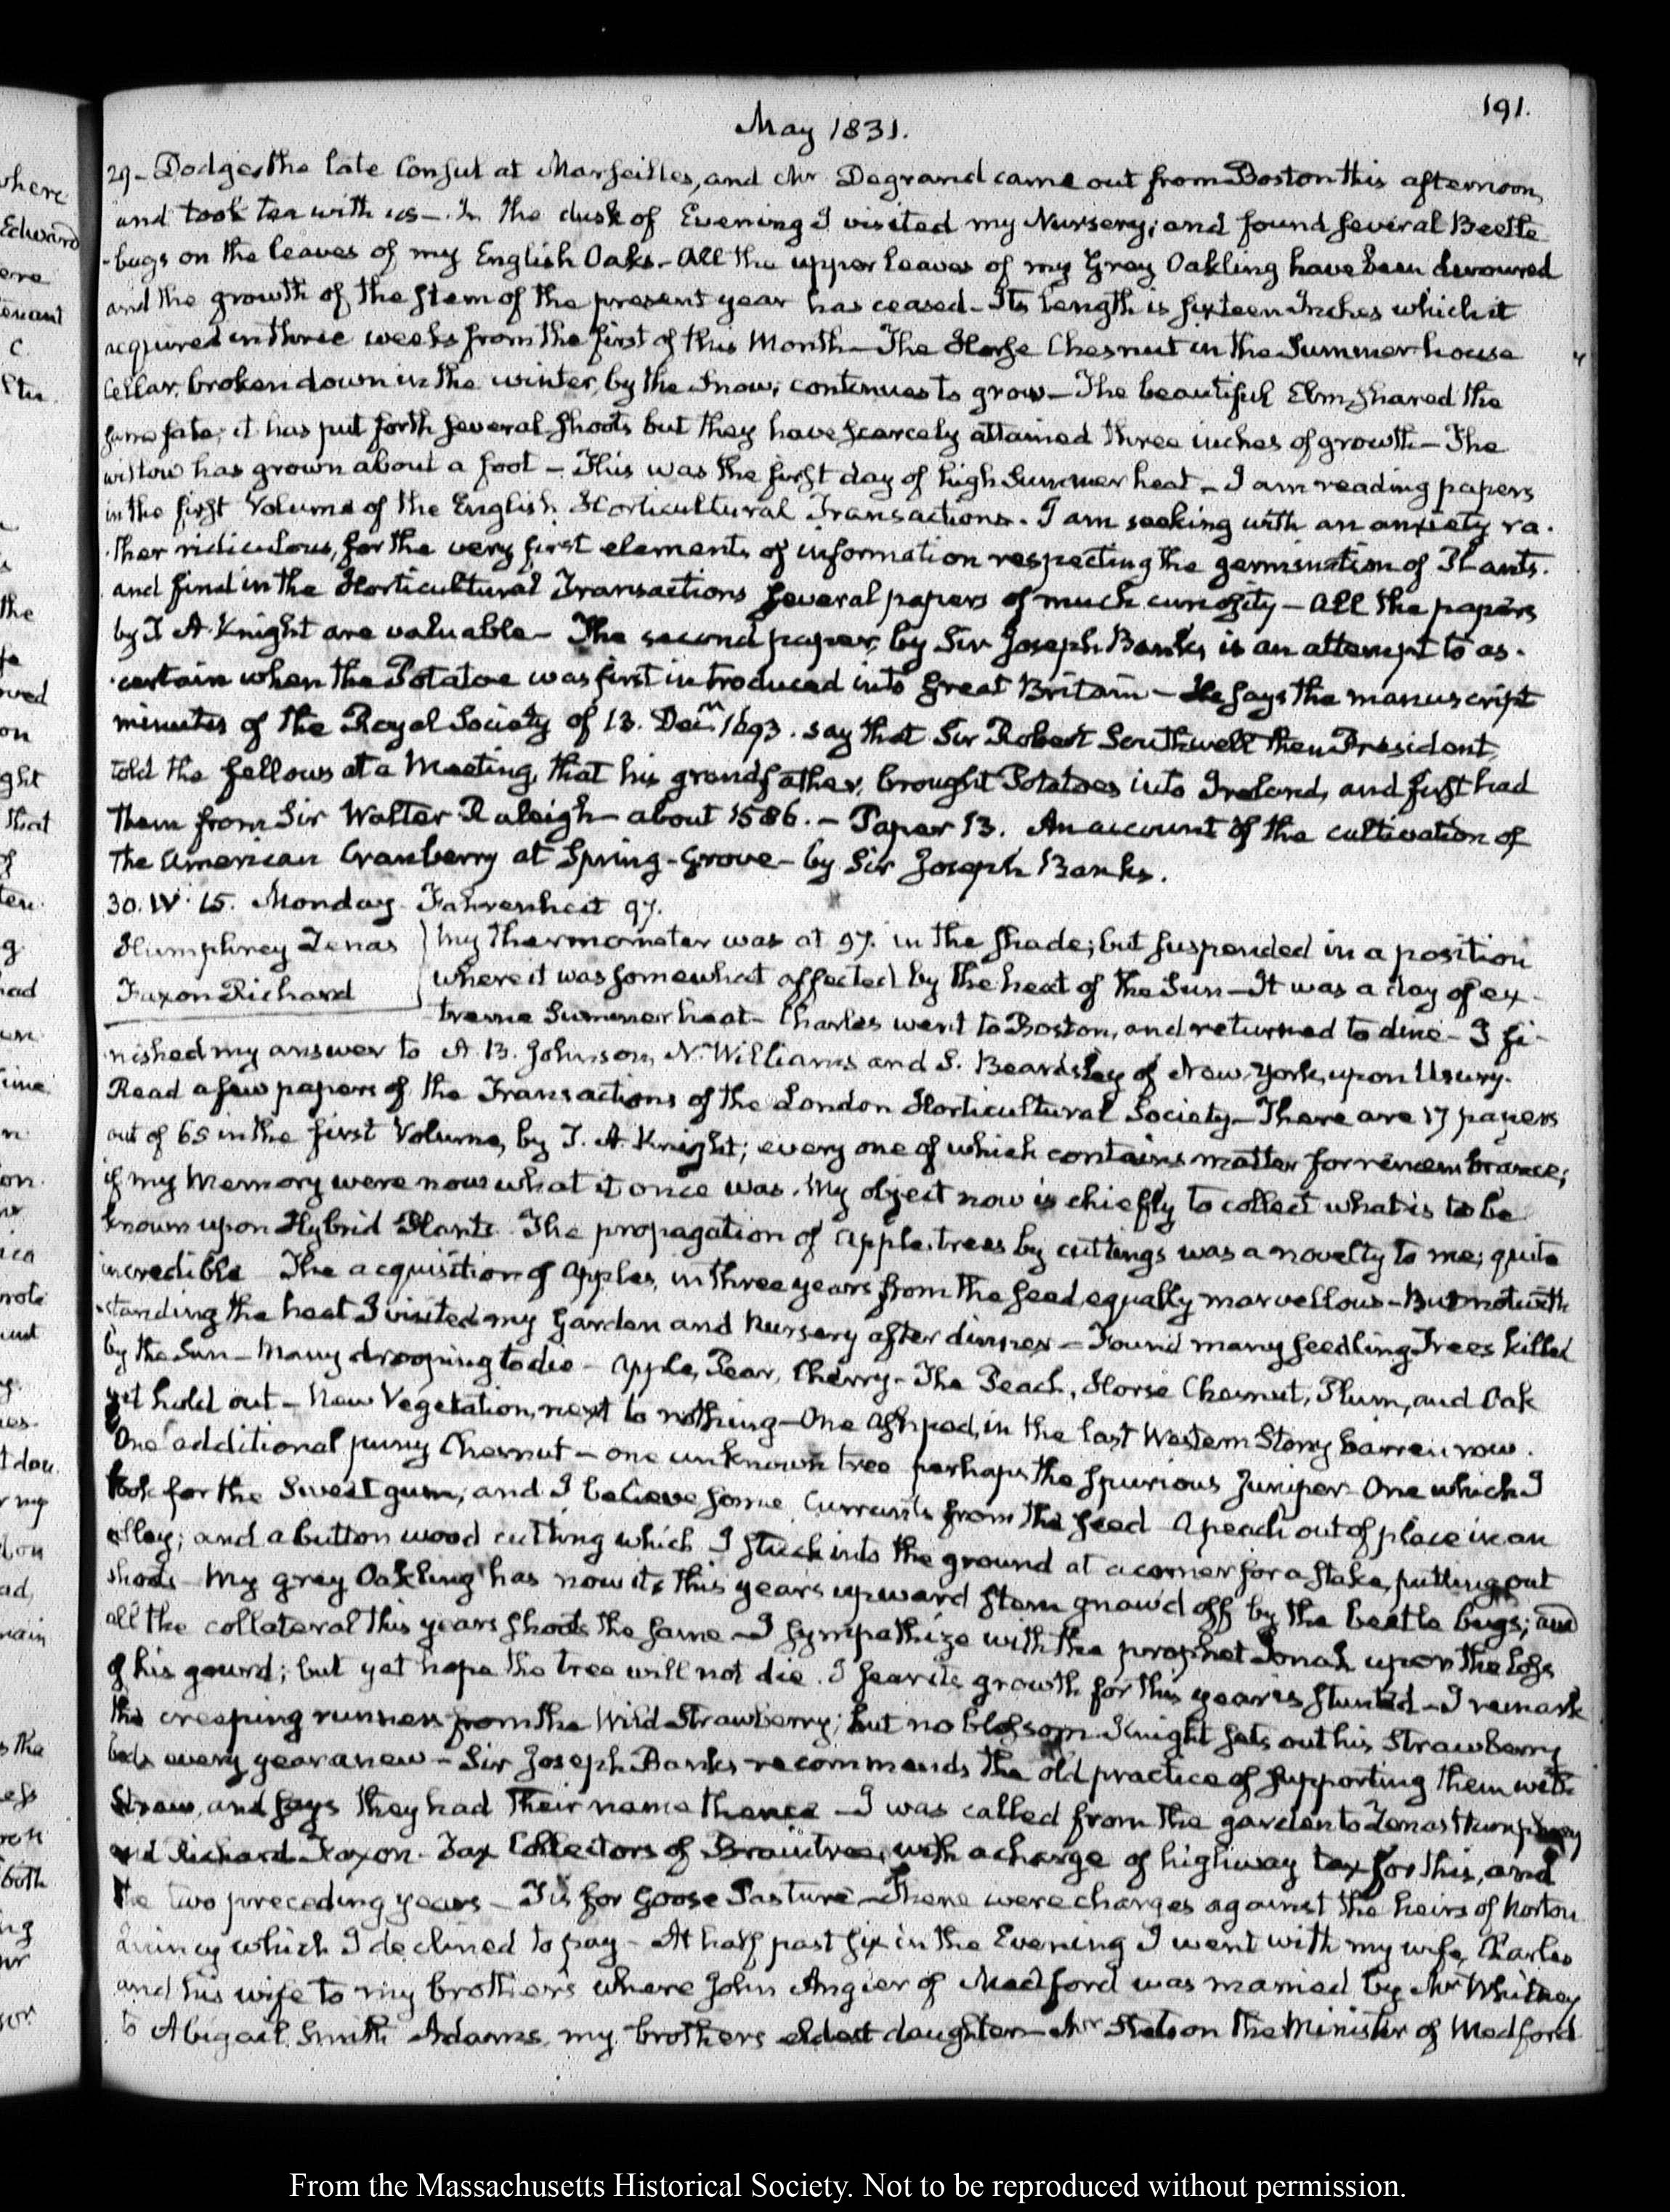 191.
May 1831.
29- Dodge, the late Consul at Marseilles, and Mr Degrand came out from Boston this afternoon,
and took tea with us-. In the dusk of Evening I visited my Nursery; and found several Beetle
-bugs on the leaves of my English Oaks- All the upper leaves of my Grey Oakling have been devoured
and the growth of the stem of the present year has ceased- Its length is sixteen Inches which it
acquired in three weeks from the first of this Month- The Horse Chesnut in the Summer house
Cellar, broken down in the winter, by the Snow, continues to grow- The beautiful Elm shared the
same fate; it has put forth several shoots but they have scarcely attained three inches of growth- The
willow has grown about a foot- This was the first day of high Summer heat- I am reading papers
in the first Volume of the English Horticultural Transactions. I am seeking with an anxiety ra-
-ther ridiculous, for the very first elements of information respecting the germination of Plants.
and find in the Horticultural Transactions several papers of much curiosity- All the papers
by T A. Knight are valuable- The second paper, by Sir Joseph Banks, is an attempt to as-
-certain when the Potatoe was first introduced into Great Britain- He says the manuscript
minutes of the Royal Society of 13. Decr. 1693. say that Sir Robert Southwell then President,
told the fellows at a Meeting, that his grandfather, brought Potatoes into Ireland, and first had
them from Sir Walter Raleigh- about 1586.- Paper 13. An account of the cultivation of
the American Cranberry at Spring-Grove- by Sir Joseph Banks.
30. IV. 15. Monday. Fahrenheit 97.
Humphrey Lenas
Faxon Richard
My thermometer was at 97. in the shade; but suspended in a position
where it was somewhat affected by the heat of the Sun- It was a day of ex-
treme Summer heat- Charles went to Boston, and returned to dine- I fi-
-nished my answer to A. B. Johnson, N. Williams and S. Beardsley of New-York, upon Usury.
Read a few papers of the Transactions of the London Horticultural Society- There are 17 papers
out of 65 in the first Volume, by T. A. Knight; every one of which contains matter for remembrance;
if my Memory were now what it once was. My object now is chiefly to collect what is to be
known upon Hybrid Plants. The propagation of apple trees by cuttings was a novelty to me; quite
incredible. The acquisition of apples, in three years from the seed, equally marvellous- But notwith
-standing the heat I visited my Garden and Nursery after dinner- Found many seedling Trees killed
by the Sun- Many drooping to die- Apple, Pear, Cherry- The Peach, Horse Chesnut, Plum, and Oak
yet hold out- New Vegetation, next to nothing- One Ash pod, in the last Western Stony barren row.
One additional puny Chesnut- one unknown tree perhaps the spurious Juniper- One which I
took for the Sweet gum; and I believe some Currants from the seed. A peach out of place in an
alley; and a button wood cutting which I stuck into the ground at a corner for a stake, putting out
shoots- My grey Oakling has now its this years upward stem gnaw'd off by the beetle bugs; and
all the collateral this years shoots the same- I sympathize with the prophet Jonah upon the loss
of his gourd; but yet hope the tree will not die. I fear its growth for this year is stunted- I remark
the creeping runners from the Wild Strawberry; but no blossom. Knight sets out his Strawberry
beds every year anew- Sir Joseph Banks recommends the old practice of supporting them with
Straw, and says they had their name thence- I was called from the garden to Lenas Humphrey
and Richard Faxon. Tax Collectors of Braintree, with a charge of highway tax for this, and
the two preceding years- Tis for Goose Pasture- There were charges against the heirs of Norton
Quincy which I declined to pay- At half past six in the Evening I went with my wife, Charles
and his wife to my brother's where John Angier of Medford was married by Mr Whitney
to Abigail Smith Adams, my brothers eldest daughter- Mr Stetson the Minister of Medford
From the Massachusetts Historical Society. Not to be reproduced without permission.